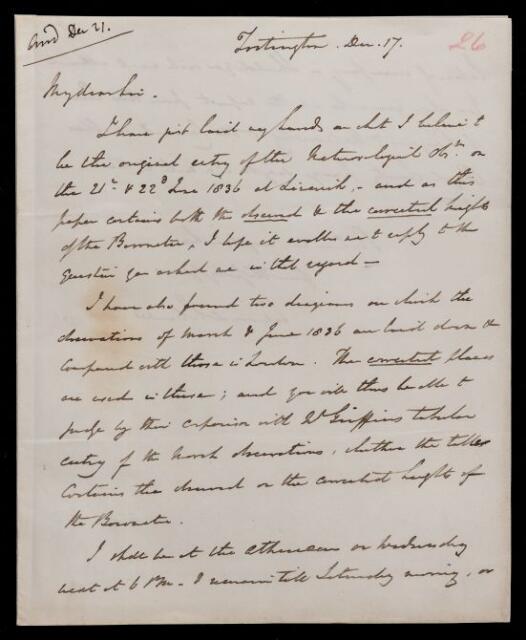 Ansd Dec 21.
Tortington. Dec. 17.
26
My dear Sir.
I have just laid my hands on what I believe to
be the original entry of the Meteorological Obsns. on
the 21st & 22d June 1836 at Limerick, - and as this
paper contains both the observed & the corrected heights
of the Barometer, I hope it enables me to reply to the
question you asked me in that regard -
I have also found two diagrams on which the
observations of March & June 1836 are laid down &
compared with those in London. The corrected places
are used in these; and you will thus be able to
judge by their comparison with Dr Griffins tabular
entry of the March observations, whether the latter
contains the observed or the corrected height of
the Barometer.
I shall be at the Athenaeum on Wednesday
next at 6 PM. I remain till Saturday morning, or